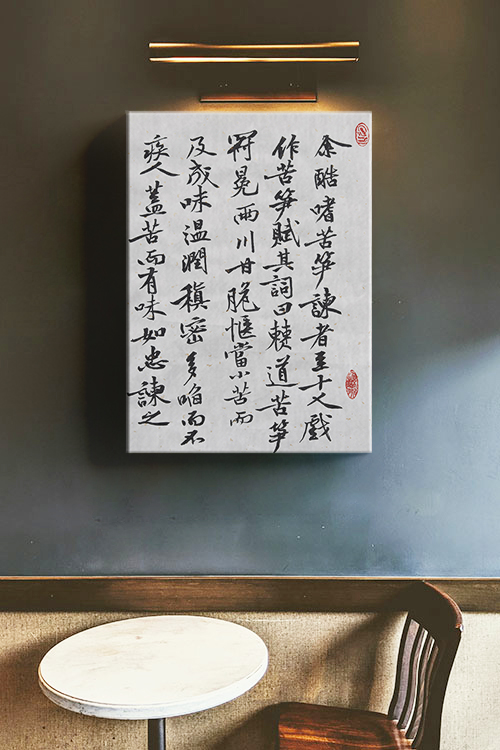 余酷嗜苦笋諫者至十人戲
作苦笋賦其詞曰僰道苦笋
冠冕兩川甘脆愜當小苦而
反成味溫潤縝密多啗而不
疾人蓋苦而有味如忠諫之